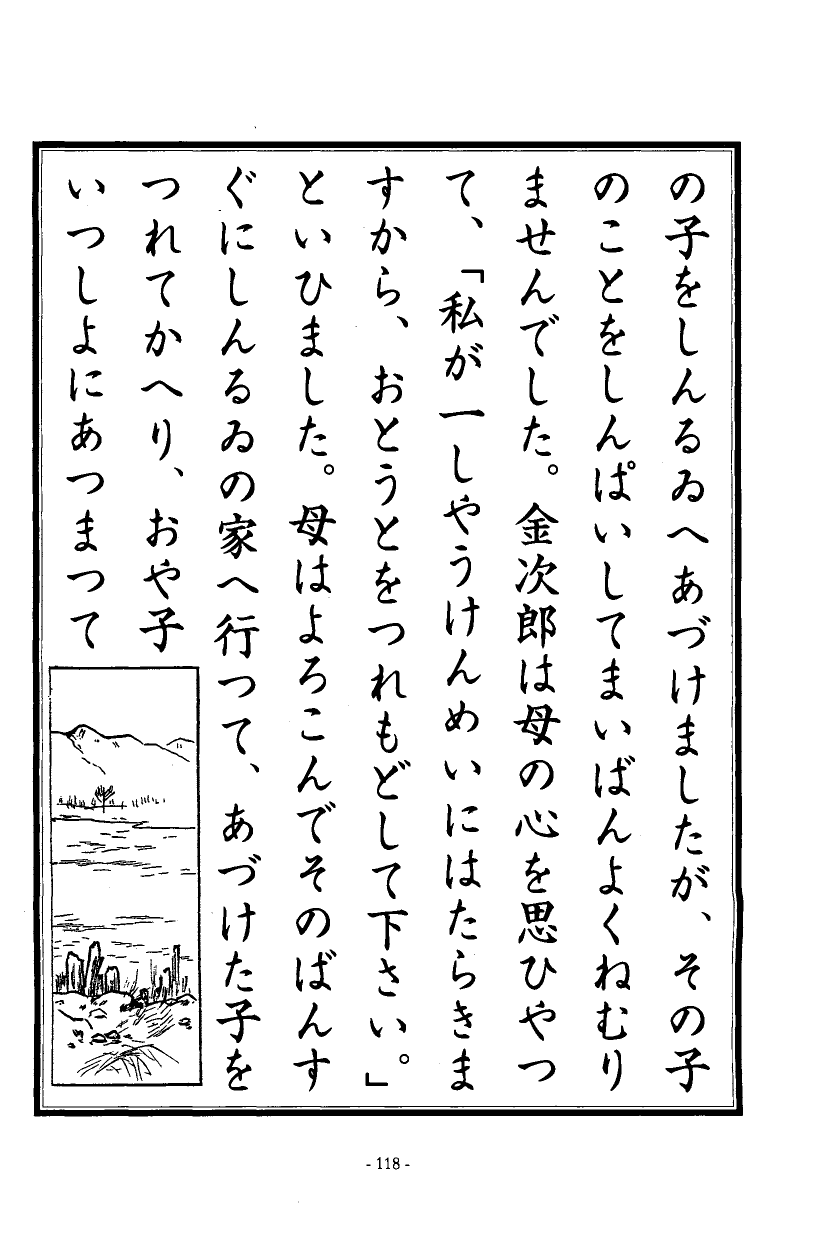 の子をしんるゐへあづけましたが、その子
のことをしんぱいしてまいばんよくねむり
ませんでした。金次郎は母の心を思ひやつ
て、「私が一しやうけんめいにはたらきま
すから、おとうとをつれもどして下さい。」
といひました。母はよろこんでそのばんす
ぐにしんるゐの家へ行つて、あづけた子を
つれてかへり、おや子
いつしよにあつまつて
- 118 -